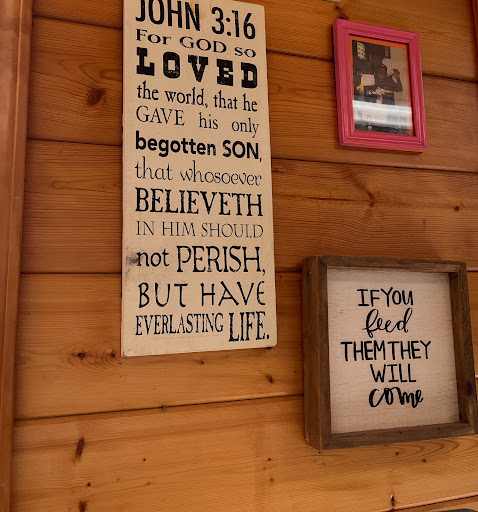 JOHN 3:16
For GOD so
LOVED
the world, that he
GAVE his only
begotten SON,
that whosoever
BELIEVETH
IN HIM SHOULD
not PERISH,
BUT HAVE
EVERLASTING LIFE.
IF YOU
feed
THEM THEY
WILL
come